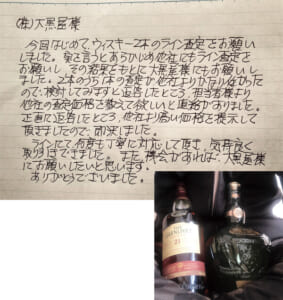 (株)大黒屋様
今回はじめて、ウィスキー2本のライン査定をお願い
しました。実を言うとあらかじめ他社にもライン査定を
お願いし、その結果をもとに大黒屋様にもお願いしまし
た。2本のうち1本の査定が他社よりかなり低かった
ので検討してみますと返信したところ、担当者様より
他社の査定価格を教えて欲しいと連絡がありました。
正直に返信したところ、他社より高い価格を提示して
頂きましたので、即決しました。
ラインにて、何度も丁寧に対応して頂き、気持良く
取引きできました。また、機会があれば、大黒屋様
にお願いしたいと思います。
ありがとうございました。
GLENLIVET
21